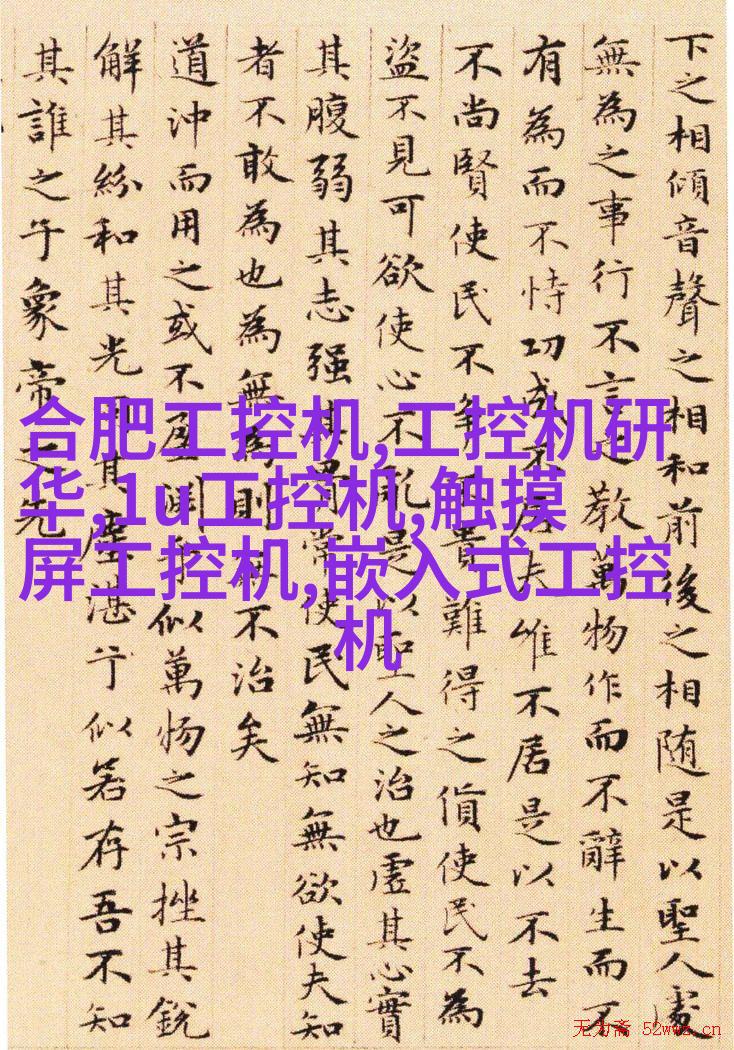 下之相傾音聲之相和前後之相随是以聖人處
無為之事行不言之教萬物作而不辭生而不
有為而不恃功成不居夫惟不居是以不去
不尚賢使民不争不貴難得之貨使民不為
盜不見可欲使心不亂是以聖人之治也虛其心實
其腹弱其志强其骨常使民無知無欲使夫知
者不敢為也為無為則無不治矣
道沖而用之或不盈渊乎似萬物之宗挫其銳
解其紛和其光同其塵湛兮似若存吾不知
其誰之子象帝之先
合肥工控机,工控机研
华,1u工控机,触摸
屏工控机,嵌入式工控
机
无为斋 52wwz.cn